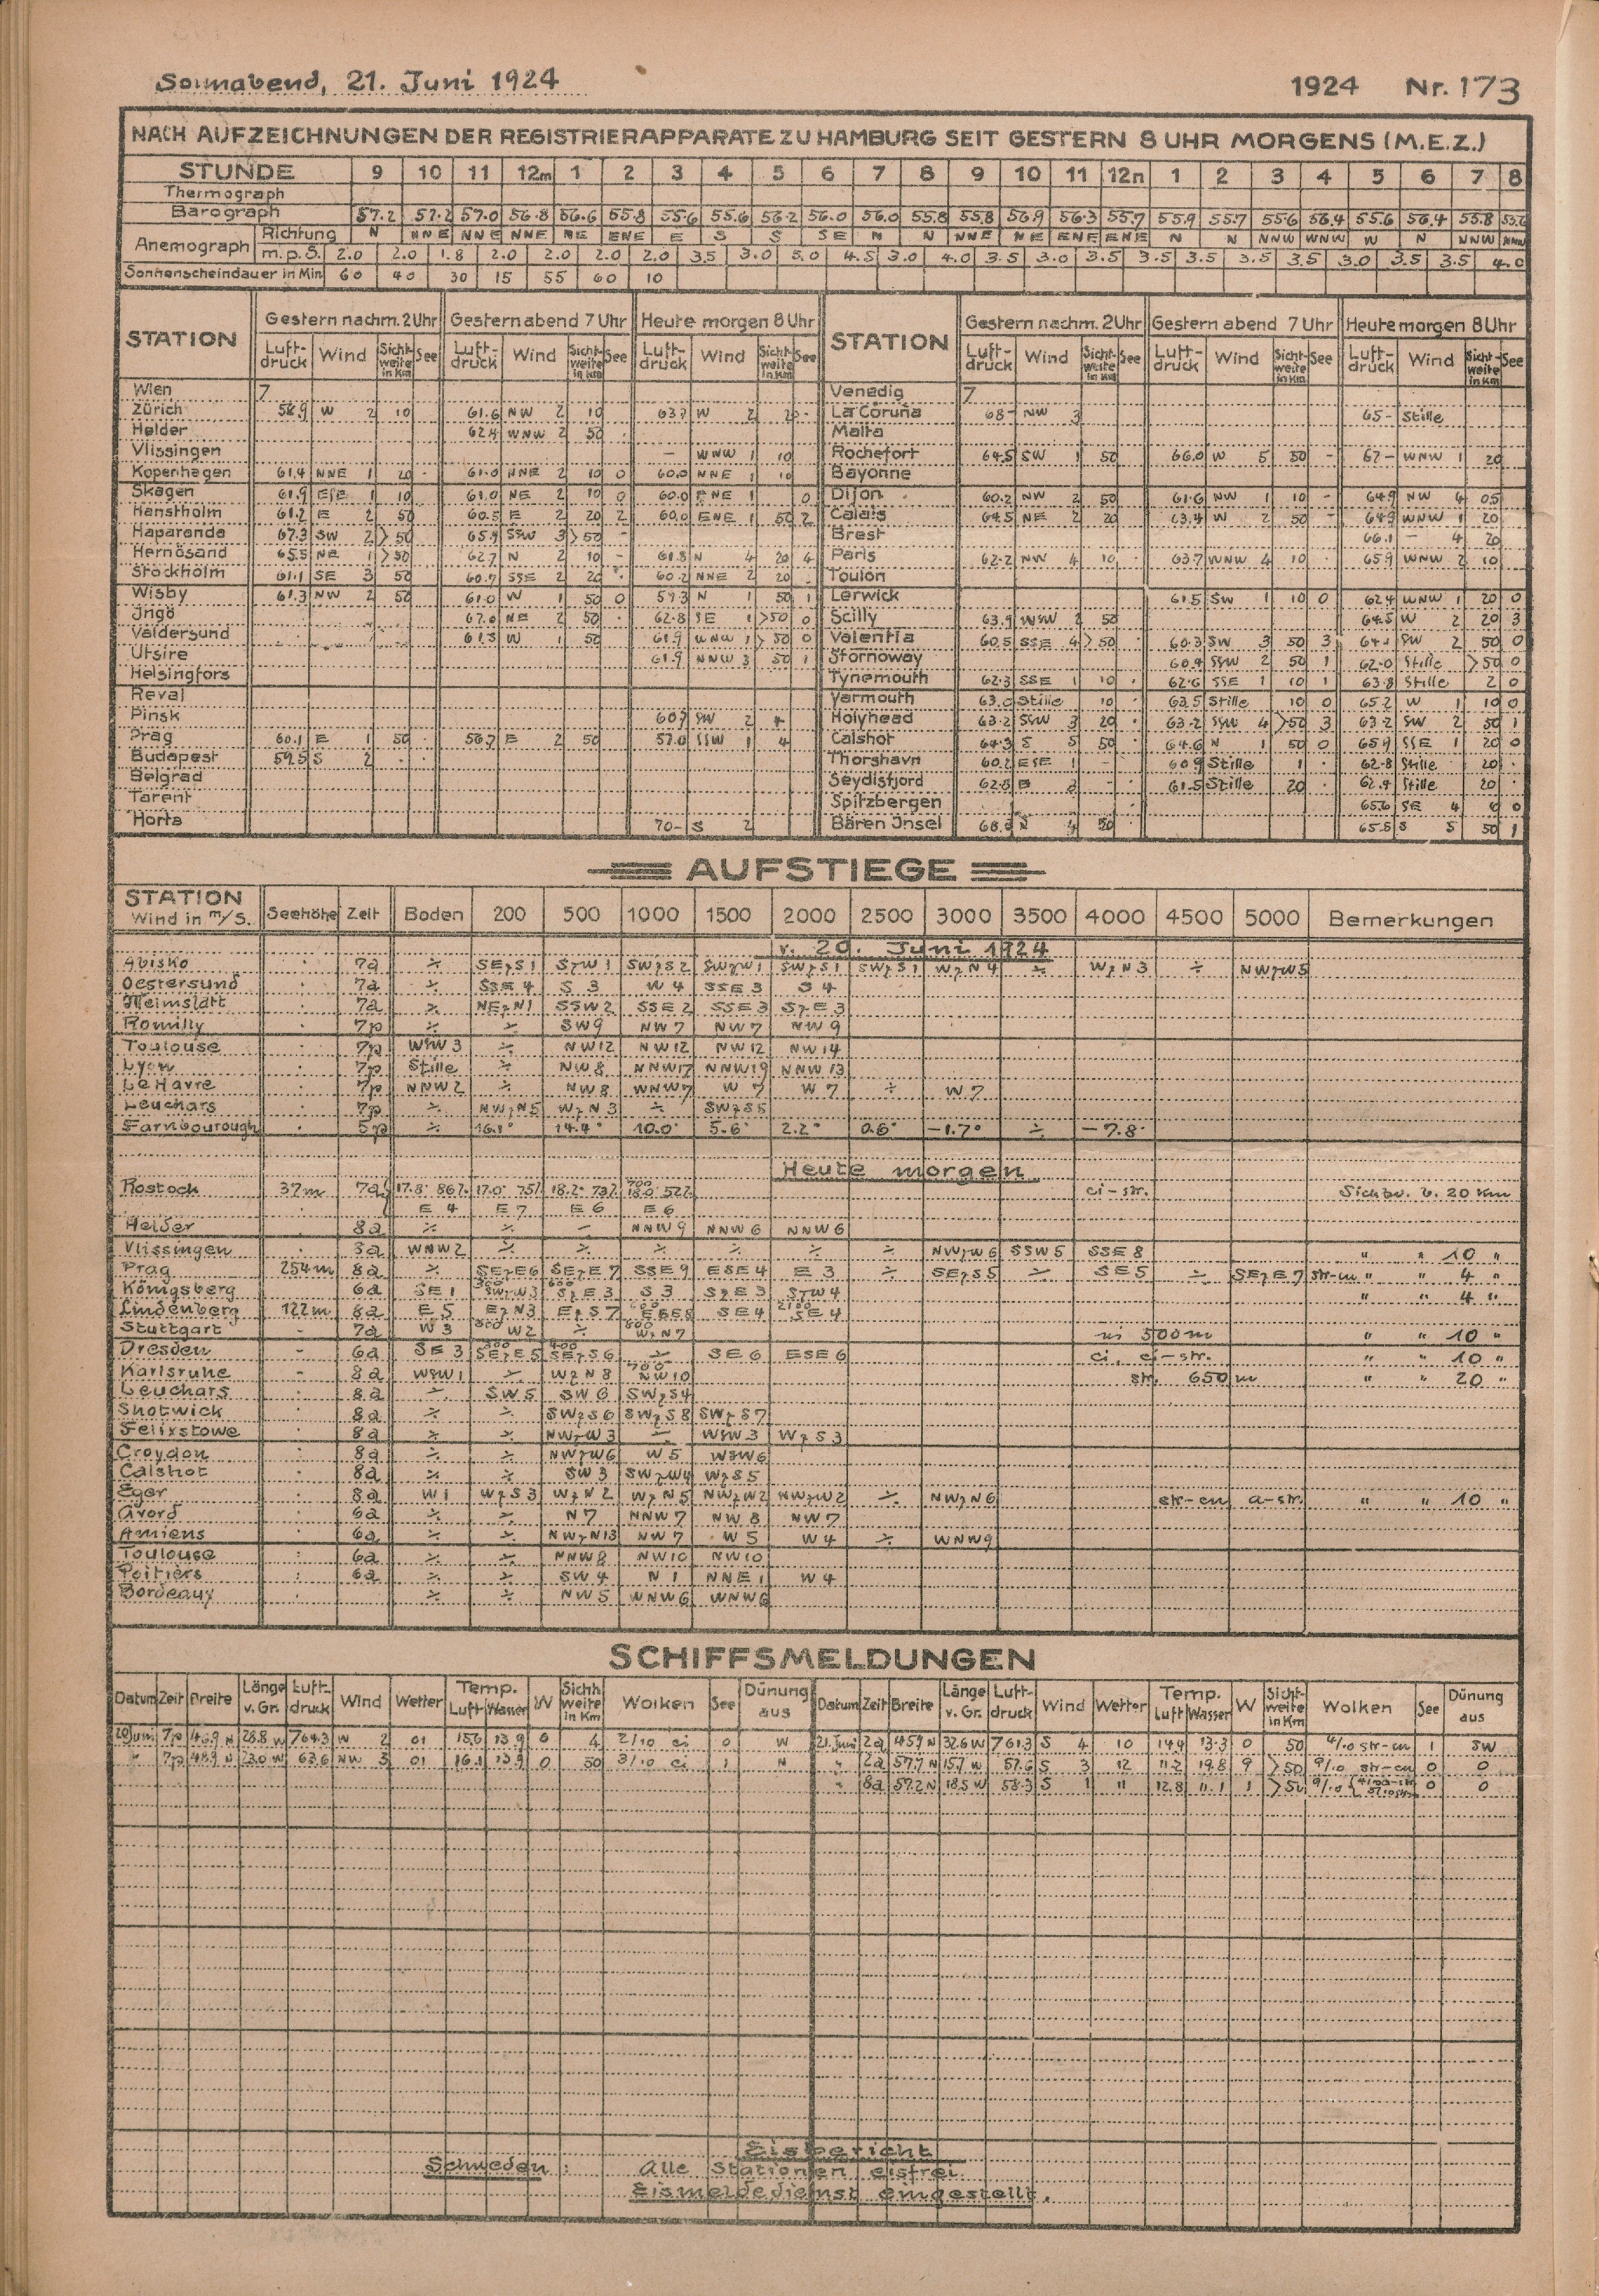 Sonnabend, 21. Juni 1924 1924 Nr. 173
NACH AUFZEICHNUNGEN DER REGISTRIERAPPARATE ZU HAMBURG SEIT GESTERN 8 UHR MORGENS (M.E.Z.)
STUNDE 9 10 11 12m 1 2 3 4 5 6 7 8 9 10 11 12n 1 2 3 4 5 6 7 8
Thermograph
Barograph 57.2 57.2 57.0 56.8 56.6 55.8 55.6 55.6 56.2 56.0 56.0 55.8 55.8 56.9 56.3 55.7 55.9 55.7 55.6 56.4 55.6 56.4 55.8
Anemograph Richtung N NNE NNE NNE NE ENE E S S SE N N NNE NE ENE ENE N N NNW WNW W N NNW NNW
m.p.S. 2.0 2.0 1.8 2.0 2.0 2.0 2.0 3.5 3.0 5.0 4.5 3.0 4.0 3.5 3.0 3.5 3.5 3.5 3.5 3.5 3.0 3.5 3.5 4.0
Sonnenscheindauer in Min 60 40 30 15 55 60 10
STATION Gestern nachm. 2 Uhr Gestern abend 7 Uhr Heute morgen 8 Uhr STATION Gestern nachm. 2 Uhr Gestern abend 7 Uhr Heute morgen 8 Uhr
Luftdruck Wind Sichtweite in Km See Luftdruck Wind Sichtweite in Km See Luftdruck Wind Sichtweite in Km See Luftdruck Wind Sichtweite in Km See Luftdruck Wind Sichtweite in Km See Luftdruck Wind Sichtweite in Km See
Wien 7 Venedig 7
Zürich W 2 10 61.6 NW 2 10 W 2 La Coruña 68- NW 3 65- Stille
Helder 62.4 WNW 2 50 Malta
Vlissingen - WNW 1 10 Rochefort 64.5 SW 1 50 66.0 W 5 50 - 67- WNW 1 20
Kopenhagen 61.4 NNE 1 20 61.0 NNE 2 10 0 60.0 NNE 1 10 Bayonne
Skagen 61.9 ESE 1 10 61.0 NE 2 10 0 60.0 ENE 1 0 Dijon 60.2 NW 2 50 61.6 NW 1 10 - 64.9 NW 4 05
Hanstholm 61.2 E 2 50 60.5 E 2 20 2 60.0 ENE 1 50 2 Calais 64.5 NE 2 20 63.4 W 2 50 - 64.9 WNW 1 20
Haparanda 67.3 SW 2 >50 65.9 SSW 3 >50 - Brest 66.1 - 4 20
Hernösand 65.5 NE 1 >50 62.7 N 2 10 - 61.8 N 4 20 4 Paris 62.2 NW 4 10 63.7 WNW 4 10 65.9 WNW 2 10
Stockholm 61.1 SE 3 50 60.7 SSE 2 20 60.2 NNE 2 20 Toulon
Wisby 61.3 NW 2 50 61.0 W 1 50 0 59.3 N 1 50 1 Lerwick 61.5 SW 1 10 0 62.4 WNW 1 20 0
Jngö 67.0 NE 2 50 62.8 SE 1 >50 0 Scilly 63.9 WSW 2 50 64.5 W 2 20 3
Valdersund 61.3 W 1 50 61.9 WNW 1 >50 0 Valentia 60.5 SSE 4 >50 60.3 SW 3 50 3 SW 2 50 0
Utsire 61.9 NNW 3 50 1 Stornoway 60.4 SSW 2 50 1 62.0 Stille >50 0
Helsingfors Tynemouth 62.3 SSE 1 10 62.6 SSE 1 10 1 63.8 Stille 2 0
Reval Yarmouth 63.0 Stille 10 63.5 Stille 10 0 65.2 W 1 10 0
Pinsk 60.7 SW 2 4 Holyhead 63.2 SSW 3 20 63.2 SSW 4 >50 3 63.2 SW 2 50 1
Prag 60.1 E 1 50 56.7 E 2 50 57.0 SSW 1 4 Calshot 64.3 S 5 50 64.6 N 1 50 0 65.9 SSE 1 20 0
Budapest 59.5 S 2 Thorshavn 60.2 ESE 1 - 60.9 Stille 1 62.8 Stille 20
Belgrad Seydisfjord 62.8 61.5 Stille 20 62.4 Stille 20
Tarent Spitzbergen 65.6 SE 4 6 0
Horta 70- S 2 Bären Jnsel N 4 50 65.5 S 5 50 1
AUFSTIEGE
STATION Wind in m/S. Seehöhe Zeit Boden 200 500 1000 1500 2000 2500 3000 3500 4000 4500 5000 Bemerkungen
v. 20. Juni 1924
Abisko 7a ÷ SEzS 1 SzW 1 SWzS 2 SWzW 1 SWzS 1 SWzS 1 WzN 4 ÷ WzN 3 ÷ NWzW 5
Oestersund 7a ÷ SSE 4 S 3 W 4 SSE 3 S 4
Heimslätt 7a ÷ NEzN 1 SSW 2 SSE 2 SSE 3 SzE 3
Romilly 7p ÷ ÷ SW 9 NW 7 NW 7 NW 9
Toulouse 7p WSW 3 ÷ NW 12 NW 12 NW 12 NW 14
Lyon 7p Stille ÷ NW 8 NNW 17 NNW 19 NNW 13
Le Havre 7p NNW 2 ÷ NW 8 WNW 7 W 7 W 7 ÷ W 7
Leuchars 7p ÷ NWzN 5 WzN 3 ÷ SWzS 5
Farnbourough 5p ÷ 16.1° 14.4° 10.0° 5.6° 2.2° 0.6° -1.7° ÷ -7.8°
Heute morgen
Rostock 37m 7a 17.8° 86% 17.0° 75% 18.2° 73% 700 18.0 52% ci-str. Sichtw. b. 20 Km
E 4 E 7 E 6 E 6
Helder 8a ÷ ÷ - NNW 9 NNW 6 NNW 6
Vlissingen 8a WNW 2 ÷ ÷ ÷ ÷ ÷ ÷ NWzW 6 SSW 5 SSE 8 " " 10 "
Prag 254m 8a ÷ SEzE 6 SEzE 7 SSE 9 ESE 4 E 3 ÷ SEzS 5 ÷ SE 5 ÷ SEzE 7 str-cu " " 4 "
Königsberg 6a SE 1 SWzW 3 600 SzE 3 S 3 SzE 3 SzW 4 " " 4 "
Lindenberg 122m 8a E 5 EzN 3 EzS 7 SE 4 2100 SE 4
Stuttgart - 7a W 3 W 2 ÷ 800 WzN 7 ni 500m " " 10 "
Dresden - 6a SE 3 SEzE 5 400 SEzS 6 ÷ SE 6 ESE 6 ci, ci-str. " " 10 "
Karlsruhe - 8a WSW 1 ÷ WzN 8 700 NW 10 str. 650 m " " 20 "
Leuchars 8a ÷ SW 5 SW 6 SWzS 4
Shotwick 8a ÷ ÷ SWzS 6 SWzS 8 SWzS 7
Felixstowe 8a ÷ ÷ NWzW 3 ÷ WSW 3 WzS 3
Croydon 8a ÷ ÷ NWzW 6 W 5 WSW 6
Calshot 8a ÷ ÷ SW 3 SWzW 4 WzS 5
Eger 8a W 1 WzS 3 WzN 2 WzN 5 NWzW 2 NWzW 2 ÷ NWzN 6 str-cu a-str. " " 10 "
Avord 6a ÷ ÷ N 7 NNW 7 NW 8 NW 7
Amiens 6a ÷ ÷ NWzN 13 NW 7 W 5 W 4 ÷ WNW 9
Toulouse 6a ÷ ÷ NNW 8 NW 10 NW 10
Poitiers 6a ÷ ÷ SW 4 N 1 NNE 1 W 4
Bordeaux ÷ ÷ NW 5 WNW 6 WNW 6
SCHIFFSMELDUNGEN
Datum Zeit Breite Länge v. Gr. Luftdruck Wind Wetter Temp. Luft Wasser W Sichtweite in Km Wolken See Dünung aus Datum Zeit Breite Länge v. Gr. Luftdruck Wind Wetter Temp. Luft Wasser W Sichtweite in Km Wolken See Dünung aus
20. Juni 7p 46.9 N 28.8 W 764.3 W 2 01 15.6 13.9 0 4 2/10 ci 0 W 21. Juni 2a 45.9 N 32.6 W 761.3 S 4 10 14.4 13.3 0 50 4/10 str-cu 1 SW
" 7p 48.9 N 23.0 W 63.6 NW 3 01 16.1 13.9 0 50 3/10 ci 1 N " 2a 57.7 N 15.7 W 57.6 S 3 12 11.2 19.8 9 >50 9/10 str-cu 0 0
" 8a 57.2 N 18.5 W 58.3 S 1 11 12.8 11.1 1 >50 9/10 0 0
Eisbericht
Schweden: Alle Stationen eisfrei
Eismeldedienst eingestellt.